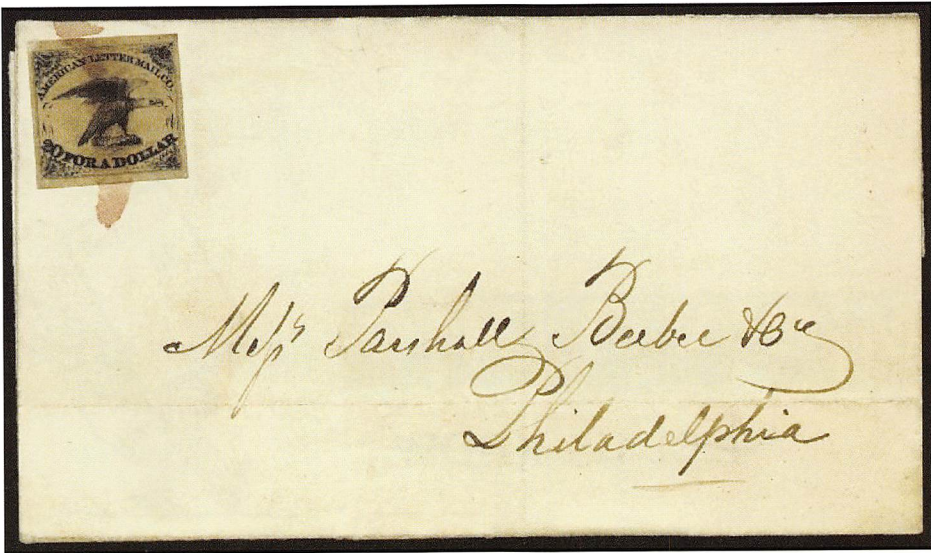 AMERICAN LETTER MAIL CO.
20 FOR A DOLLAR
Messrs Parshall Beebee & Co
Philadelphia